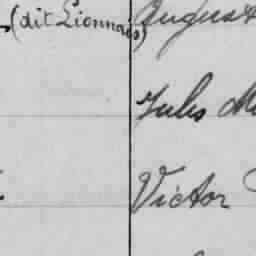 (dit Lionnais) August
Jules M
Victor